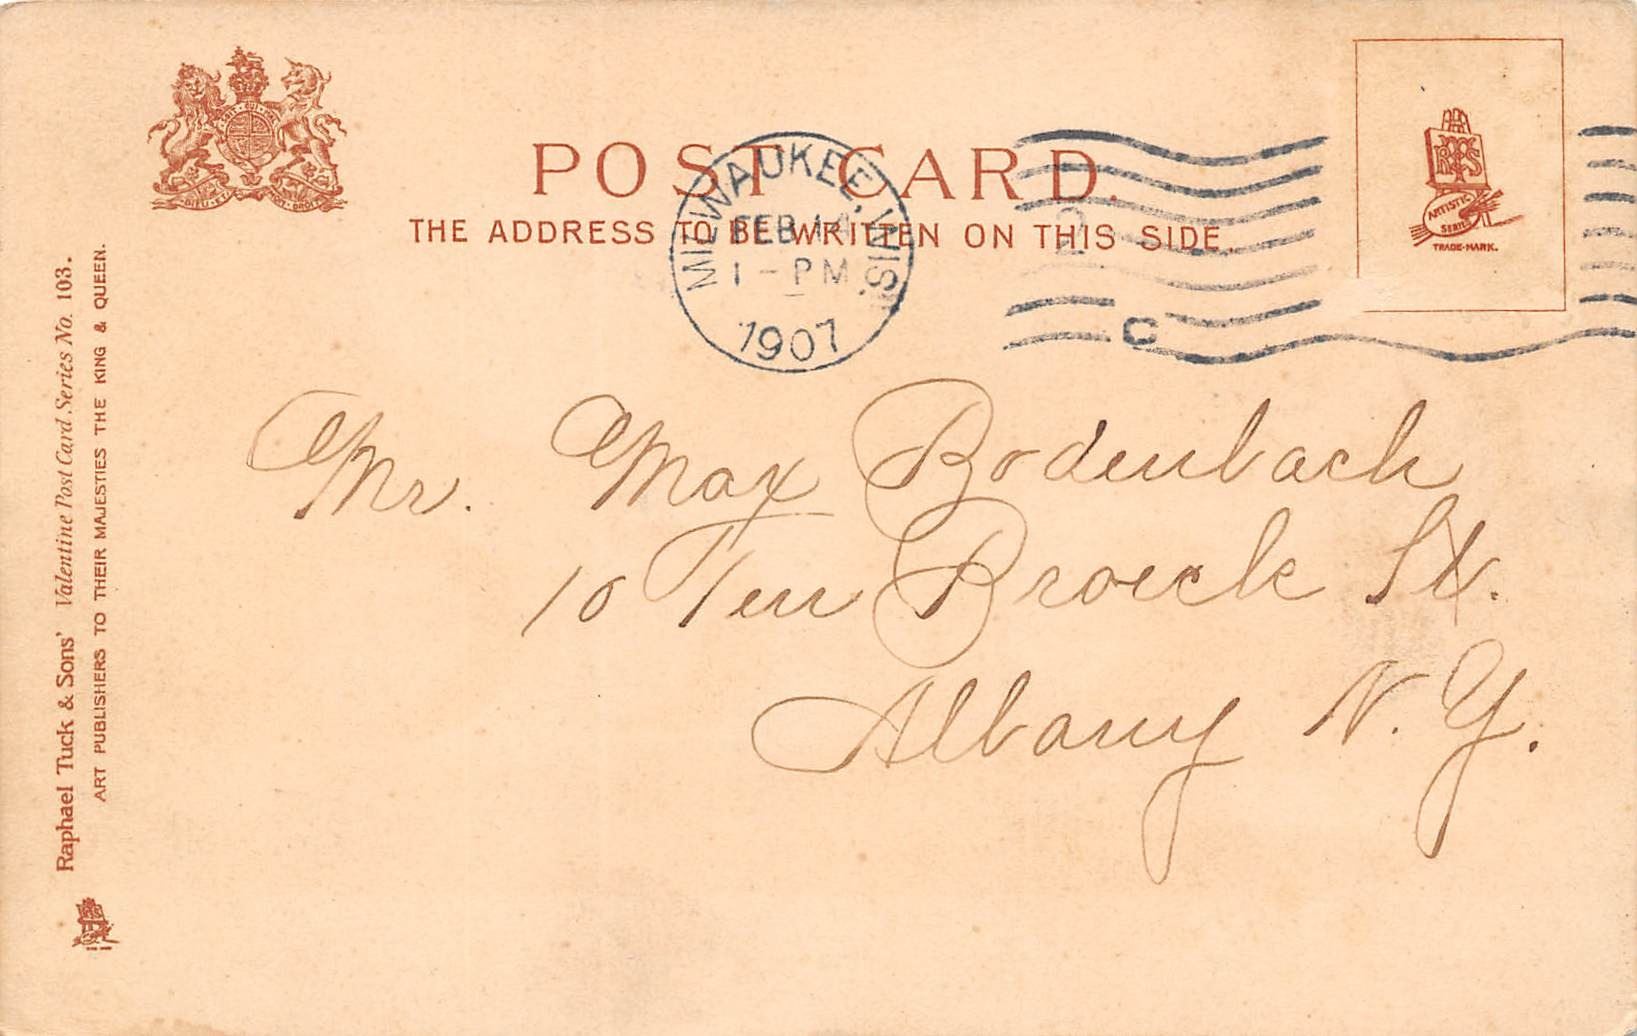 POST CARD.
THE ADDRESS TO BE WRITTEN ON THIS SIDE.
MILWAUKEE, WIS.
FEB 14
1 - PM
1907
2
C
ARTISTIC
SERIES
TRADE-MARK.
Mr. Max Bodenbach
10 Ten Broeck St.
Albany N.Y.
Raphael Tuck & Sons' Valentine Post Card Series No. 103.
ART PUBLISHERS TO THEIR MAJESTIES THE KING & QUEEN.